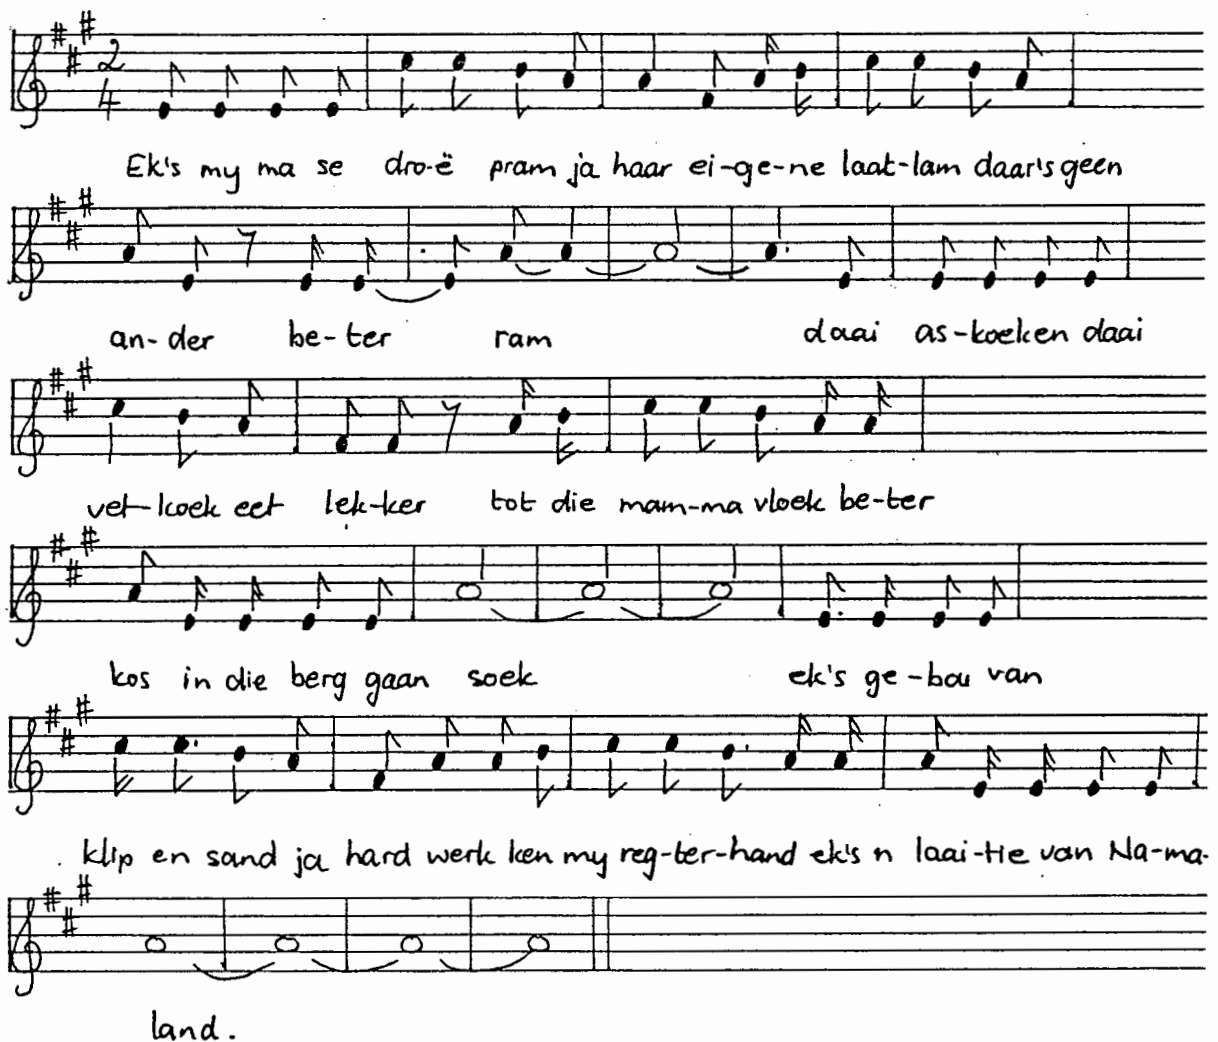 2
4
Ek's my ma se dro-ë pram ja haar ei-ge-ne laat-lam daar's geen
an-der be-ter ram daai as-koeken daai
vet-koek eet lek-ker tot die mam-ma vloek be-ter
kos in die berg gaan soek ek's ge-bou van
klip en sand ja hard werk ken my reg-ter-hand ek's n laai-tie van Na-ma-
land.